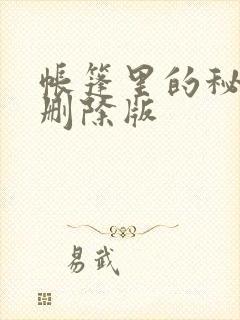 帐篷里的秘
删除版
易武